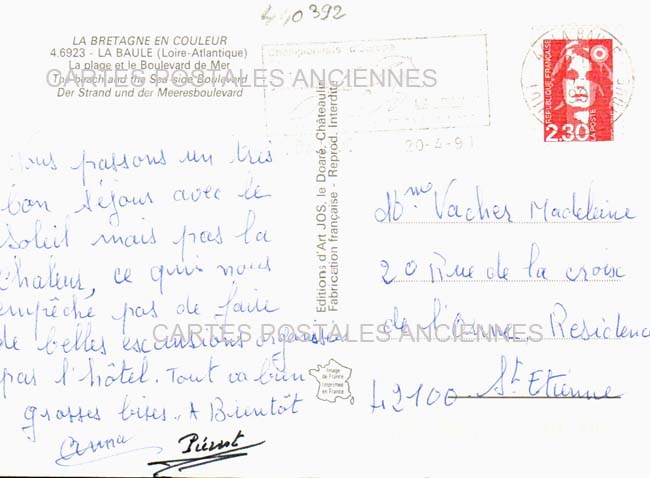 440392
LA BRETAGNE EN COULEUR
4.6923 - LA BAULE (Loire-Atlantique)
La plage et le Boulevard de Mer
The beach and the Sea-side Boulevard
Der Strand und der Meeresboulevard
CARTES POSTALES ANCIENNES
20-4-91
REPUBLIQUE FRANÇAISE
2,30
LA POSTE
Editions d'Art JOS, le Doaré, Châteaulin
Fabrication française - Reprod. interdite
nous passons un très
bon séjour avec le
soleil mais pas la
chaleur, ce qui nous
empêche pas de faire
de belles excursions organisées
CARTES POSTALES ANCIENNES
pas l'hôtel. Tout va bien
grosses bises. A Bientôt
Anna Pierrot
Image
de France
Imprimée
en France
Mme Vacher Madeleine
20 Rue de la croix
de l'Orme, Residence
42100 St Etienne